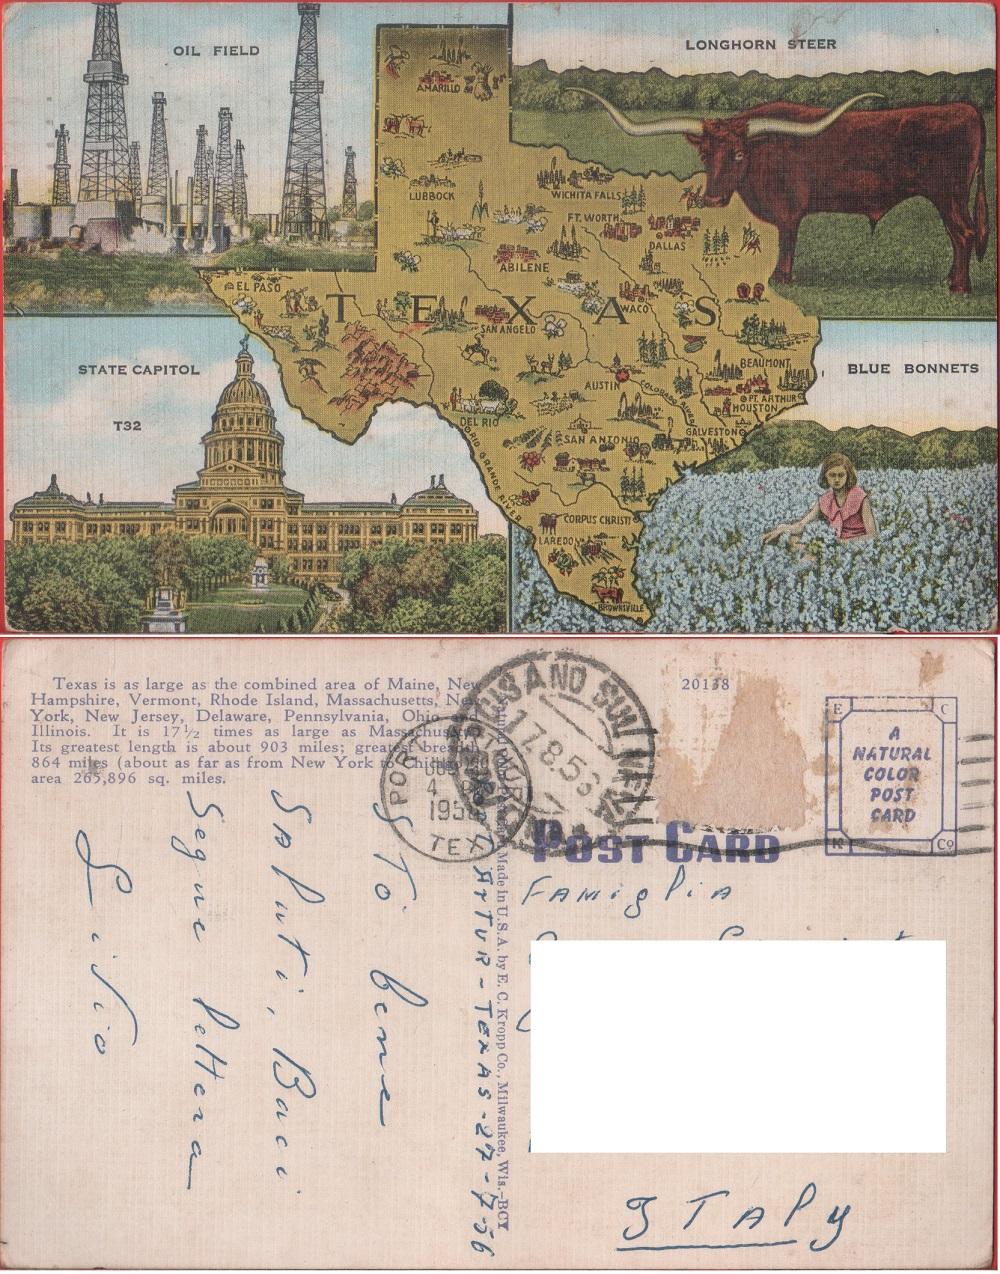 OIL FIELD
LONGHORN STEER
AMARILLO
LUBBOCK
WICHITA FALLS
FT. WORTH
DALLAS
ABILENE
EL PASO
TEXAS
WACO
SAN ANGELO
STATE CAPITOL
T32
BEAUMONT
BLUE BONNETS
AUSTIN
COLORADO RIVER
PT. ARTHUR
HOUSTON
DEL RIO
GALVESTON
SAN ANTONIO
RIO GRANDE RIVER
CORPUS CHRISTI
LAREDO
BROWNSVILLE
Texas is as large as the combined area of Maine, New
Hampshire, Vermont, Rhode Island, Massachusetts, New
York, New Jersey, Delaware, Pennsylvania, Ohio and
Illinois. It is 17½ times as large as Massachusetts.
Its greatest length is about 903 miles; greatest breadth
864 miles (about as far as from New York to Chicago)
area 265,896 sq. miles.
20138
E C
A
NATURAL
COLOR
POST
CARD
K Co
PORT ARTHUR
4 PM
195
TEX
17.8.56
POST CARD
Made in U.S.A. by E. C. Kropp Co., Milwaukee, Wis.—BCY
Port Artur - Texas - 27-7-56
Sto bene
Saluti, Baci
Segue lettera
Livio
Famiglia
Italy